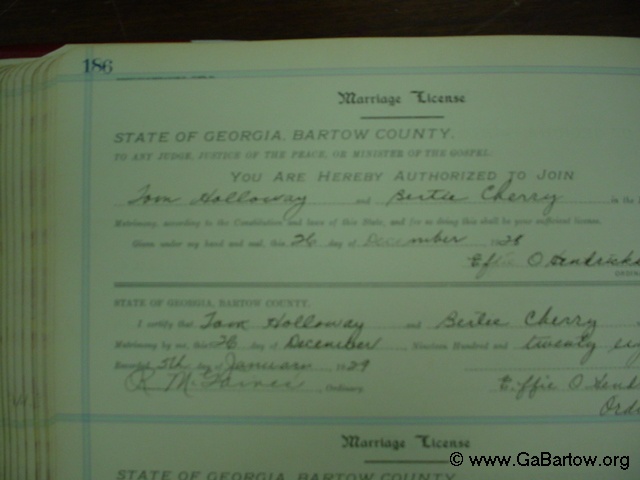 186
Marriage License
STATE OF GEORGIA, BARTOW COUNTY.
TO ANY JUDGE, JUSTICE OF THE PEACE, OR MINISTER OF THE GOSPEL.
YOU ARE HEREBY AUTHORIZED TO JOIN
Tom Holloway and Bertie Cherry in the
Matrimony, according to the Constitution and laws of this State, and for so doing this shall be your sufficient license.
Given under my hand and seal, this 26 day of December 1928
Effie O Hendricks
STATE OF GEORGIA, BARTOW COUNTY.
I certify that Tom Holloway and Bertie Cherry
Matrimony by me, this 26 day of December Nineteen Hundred and twenty
Recorded 5th day of January 1929
R M Ordinary.
Effie O Hend
Ord
Marriage License
STATE OF GEORGIA, BARTOW COUNTY
© www.GaBartow.org